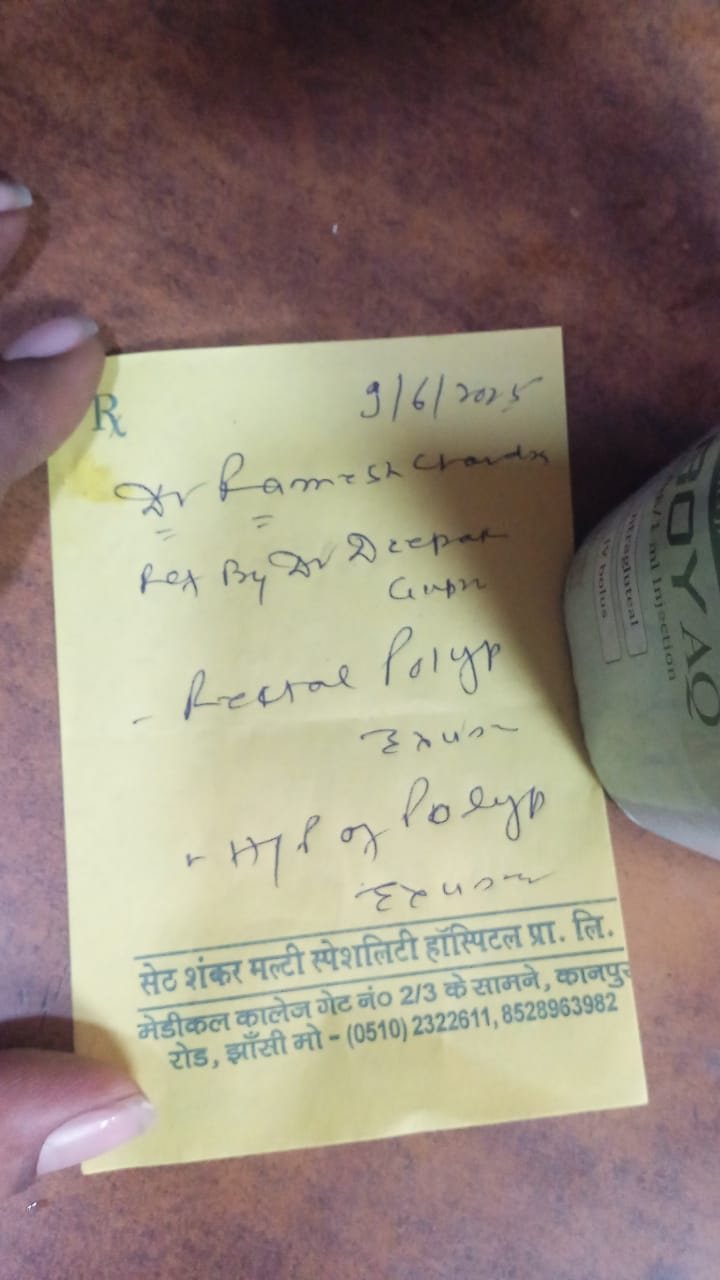 Rx
9/6/2025
Dr Ramesh Chandra
Ref By Dr Deepak
Gupta
- Rectal Polyp
Excision
- H/P of Polyp
Excision
सेट शंकर मल्टी स्पेशलिटी हॉस्पिटल प्रा. लि.
मेडीकल कालेज गेट नं० 2/3 के सामने, कानपुर
रोड, झाँसी मो - (0510) 2322611, 8528963982
ROY AQ
/1 ml Injection
ntragluteal
IV bolus